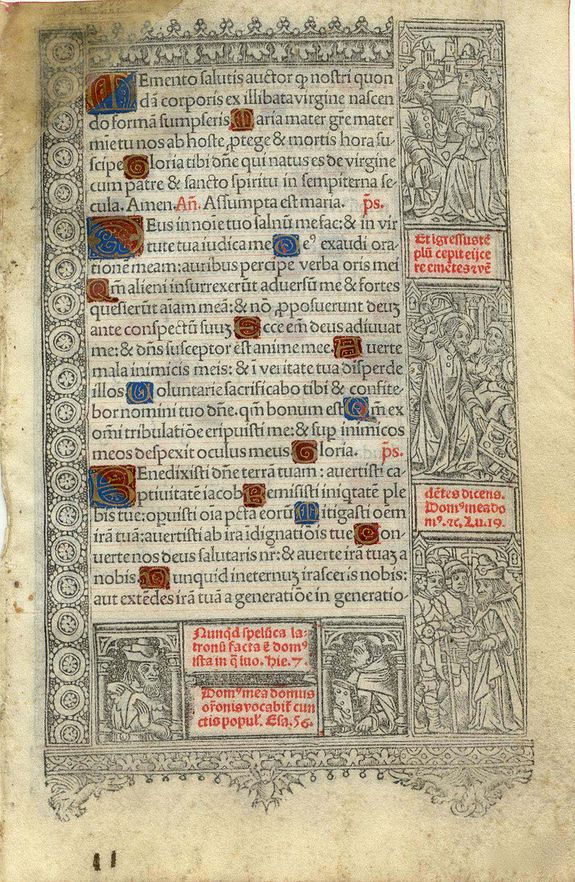 Memento salutis auctor ꝙ nostri quon
dā corporis ex illibata virgine nascen
do formā sumpseris Maria mater gre mater
mie tu nos ab hoste ꝓtege & mortis hora su-
scipe Gloria tibi dñe qui natus es de virgine
cum patre & sancto spiritu in sempiterna se-
cula. Amen. Añ. Assumpta est maria. p̄s.
Deus in noīe tuo saluū me fac: & in vir
tute tua iudica me Deꝰ exaudi ora-
tionē meam: auribus percipe verba oris mei
Qm̄ alieni insurrexerūt adversū me & fortes
quesierūt aīam meā: & nō ꝓposuerunt deuꝫ
ante conspectū suuꝫ Ecce em̄ deus adiuvat
me: & dñs susceptor est anime mee Averte
mala inimicis meis: & ī veritate tua disperde
illos Voluntarie sacrificabo tibi & confite
bor nomini tuo dñe. qm̄ bonum est Qm̄ ex
omī tribulatiōe eripuisti me: & sup inimicos
meos despexit oculus meus Gloria. p̄s.
Benedixisti dñe terrā tuam: avertisti ca
ptivitatē iacob Remisisti iniqtatē ple
bis tue: opuisti oīa pctā eorū Mitigasti oem
irā tuā: avertisti ab ira īdignatiōis tue Con
verte nos deus salutaris nr̄: & averte irā tuaꝫ a
nobis Nunquid ineternuꝫ irasceris nobis:
aut extēdes irā tuā a generatiōe in generatio
Et īgressus tē
plū cepit eijce
re emētes ⁊ vē
dētes dicens.
Domꝰ mea do
mꝰ. ⁊c. Lu. 19.
Nunqd spelūca la-
tronū facta ē domꝰ
ista in q̄ īvo. Hie. 7.
Domꝰ mea domus
orōnis vocabiť cun
ctis populꝰ. Esa. 56.
11